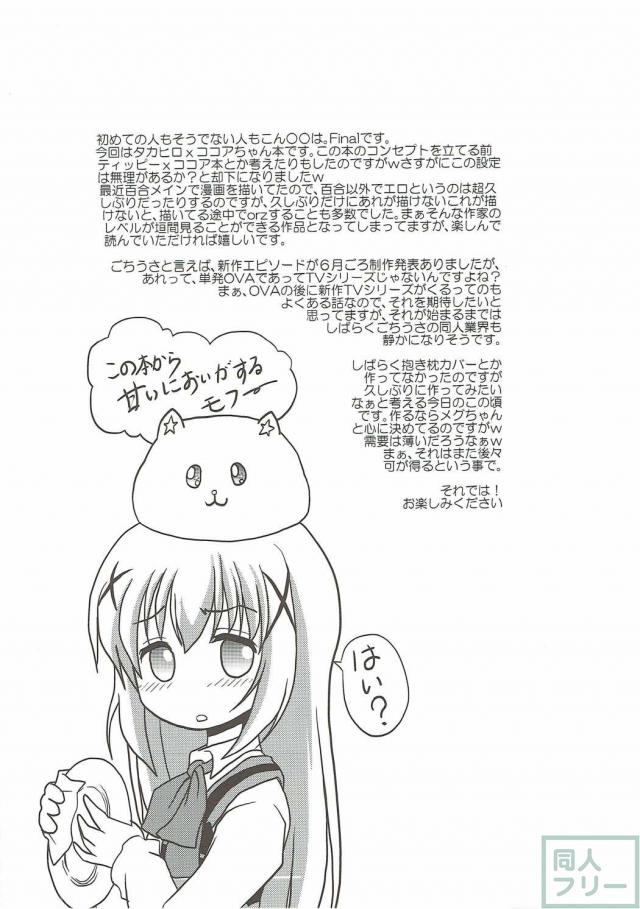 初めての人もそうでない人もこん〇〇は。Finalです。
今回はタカヒロxココアちゃん本です。この本のコンセプトを立てる前
ティッピーxココア本とか考えたりもしたのですがwさすがにこの設定
は無理があるか？と却下になりましたw
最近百合メインで漫画を描いてたので、百合以外でエロというのは超久
しぶりだったりするのですが、久しぶりだけにあれが描けないこれが描
けないと、描いてる途中でorzすることも多数でした。まぁそんな作家の
レベルが垣間見ることができる作品となってしまってますが、楽しんで
読んでいただければ嬉しいです。
ごちうさと言えば、新作エピソードが６月ごろ制作発表ありましたが、
あれって、単発OVAであってTVシリーズじゃないんですよね？
まぁ、OVAの後に新作TVシリーズがくるってのも
よくある話なので、それを期待したいと
思ってますが、それが始まるまでは
しばらくごちうさの同人業界も
静かになりそうです。
しばらく抱き枕カバーとか
作ってなかったのですが
久しぶりに作ってみたい
なぁと考える今日のこの頃
です。作るならメグちゃん
と心に決めてるのですがw
需要は薄いだろうなぁw
まぁ、それはまた後々
可が得るという事で。
それでは！
お楽しみください
この本から
甘いにおいがする
モフー
はい？
同人
フリー